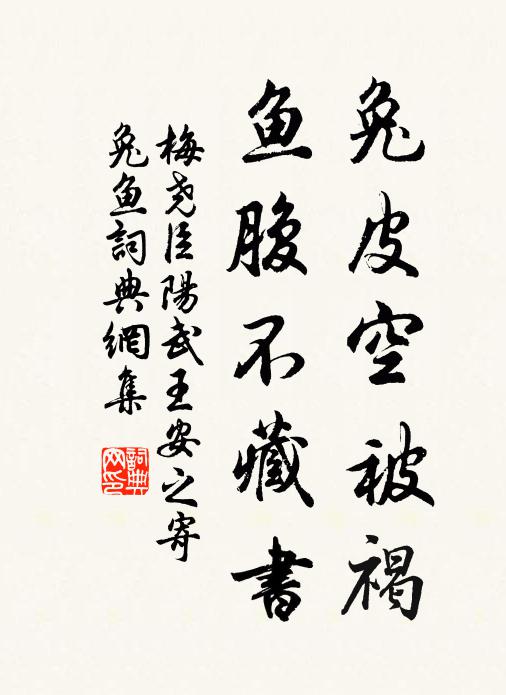 兔皮空被褐
鱼腹不藏書
梅尧臣陽武王安之寄
兔鱼詞典網集
詞典网印